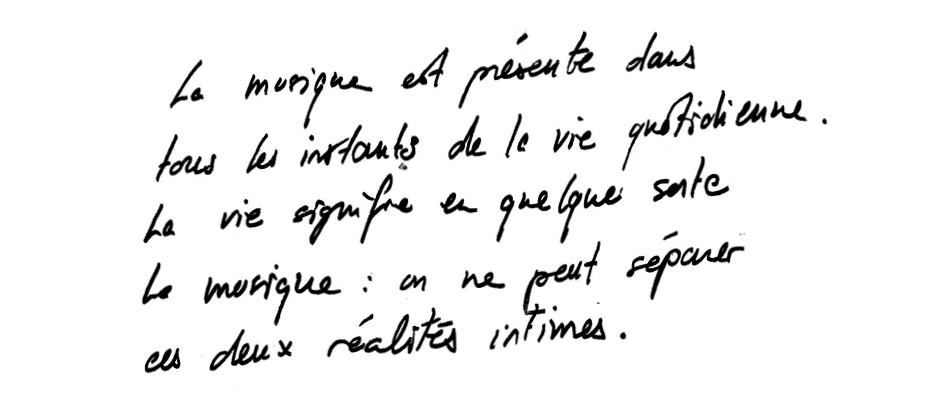 La musique est présente dans
tous les instants de la vie quotidienne.
La vie signifie en quelque sorte
la musique : on ne peut séparer
ces deux réalités intimes.